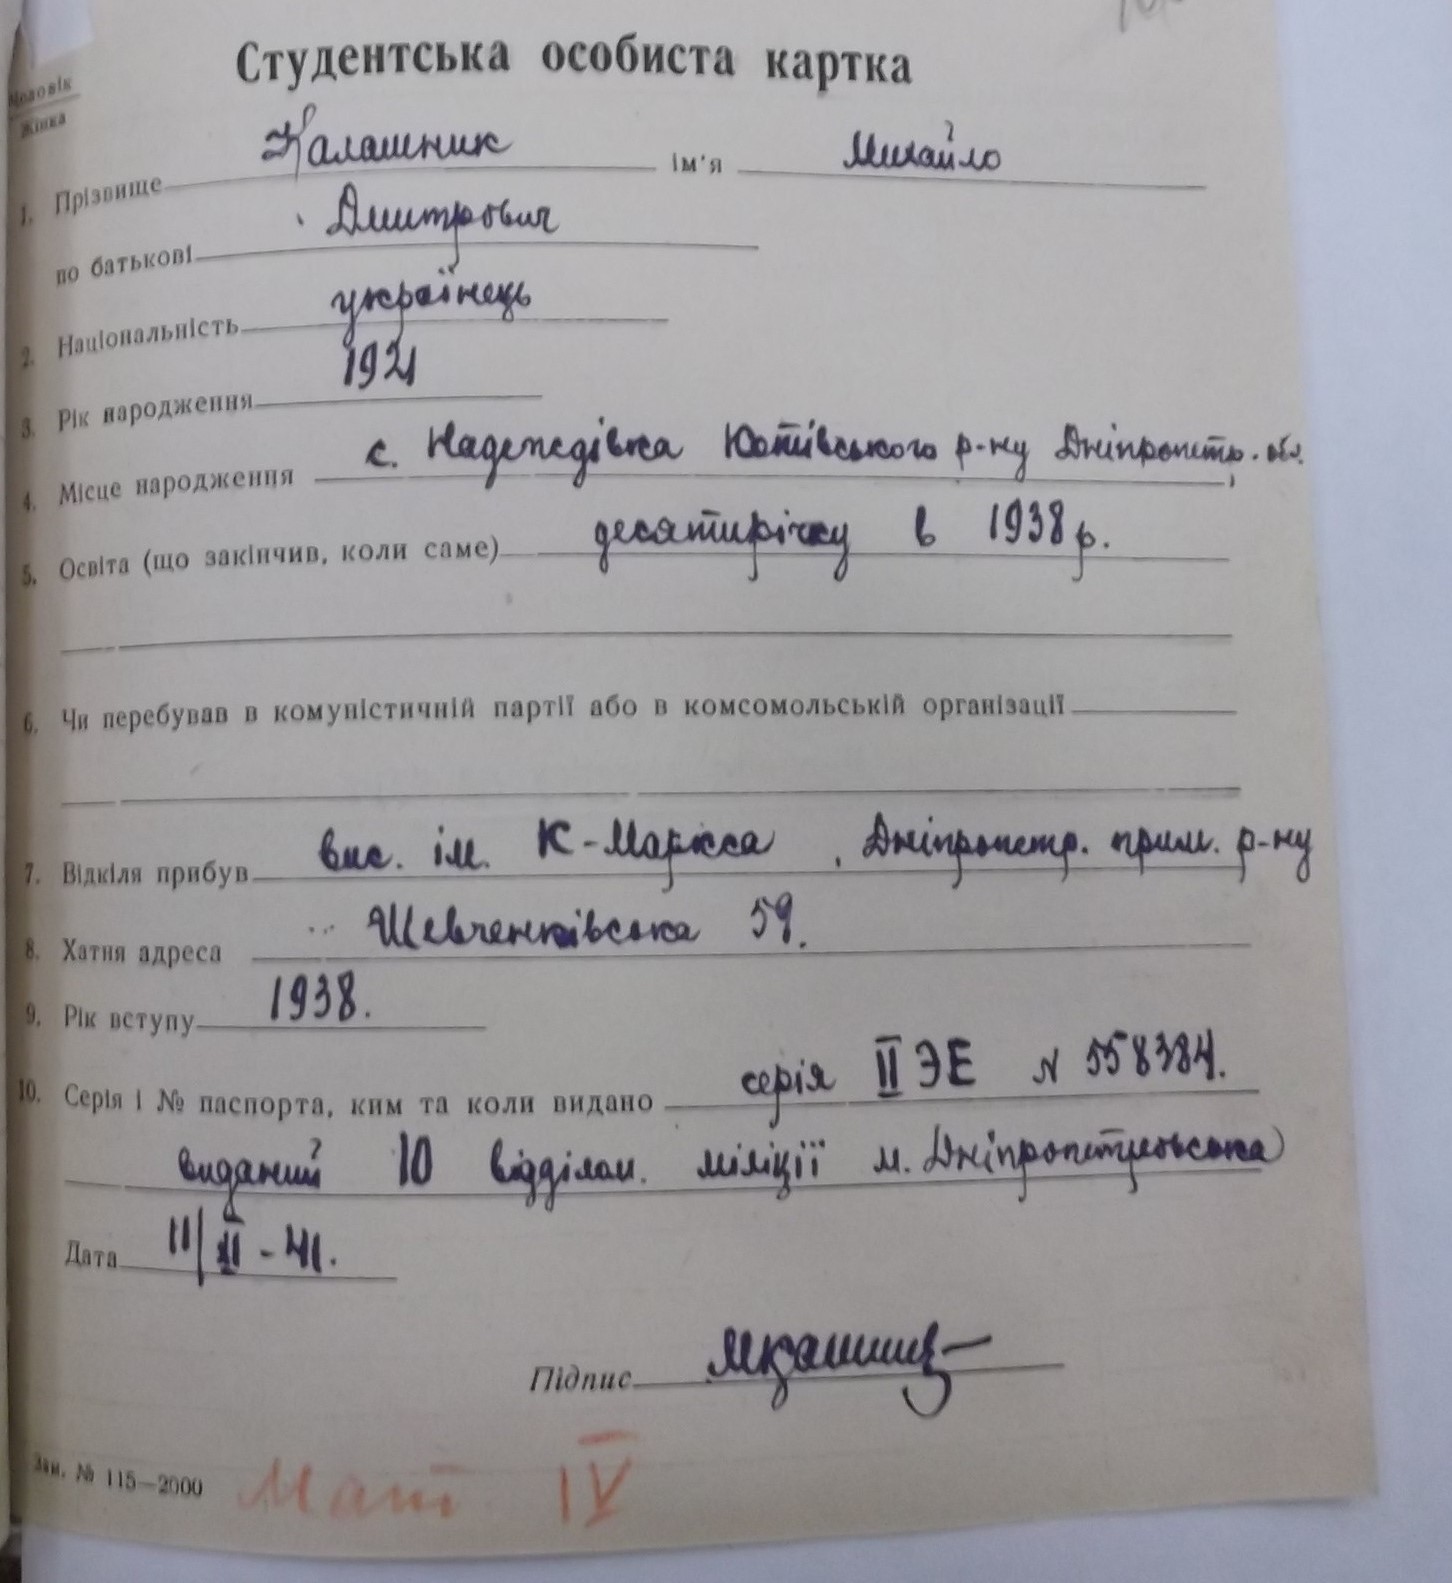 Студентська особиста картка
Чоловік
Жінка
1. Прізвище Калашник ім'я Михайло
по батькові Дмитрович
2. Національність українець
3. Рік народження 1921
4. Місце народження с. Надеждівка р-ну Дніпропетр. обл.
5. Освіта (що закінчив, коли саме) десятирічку в 1938 р.
6. Чи перебував в комуністичній партії або в комсомольській організації
7. Відкіля прибув вис. ім. К-Маркса, Дніпропетр. прим. р-ну
8. Хатня адреса Шевченківська 59.
9. Рік вступу 1938.
10. Серія і № паспорта, ким та коли видано серія II ЭЕ N 558384.
виданий 10 відділом. міліції м. Дніпропетровська
Дата 11/II-41.
Підпис
Зам. № 115—2000
Мат IV